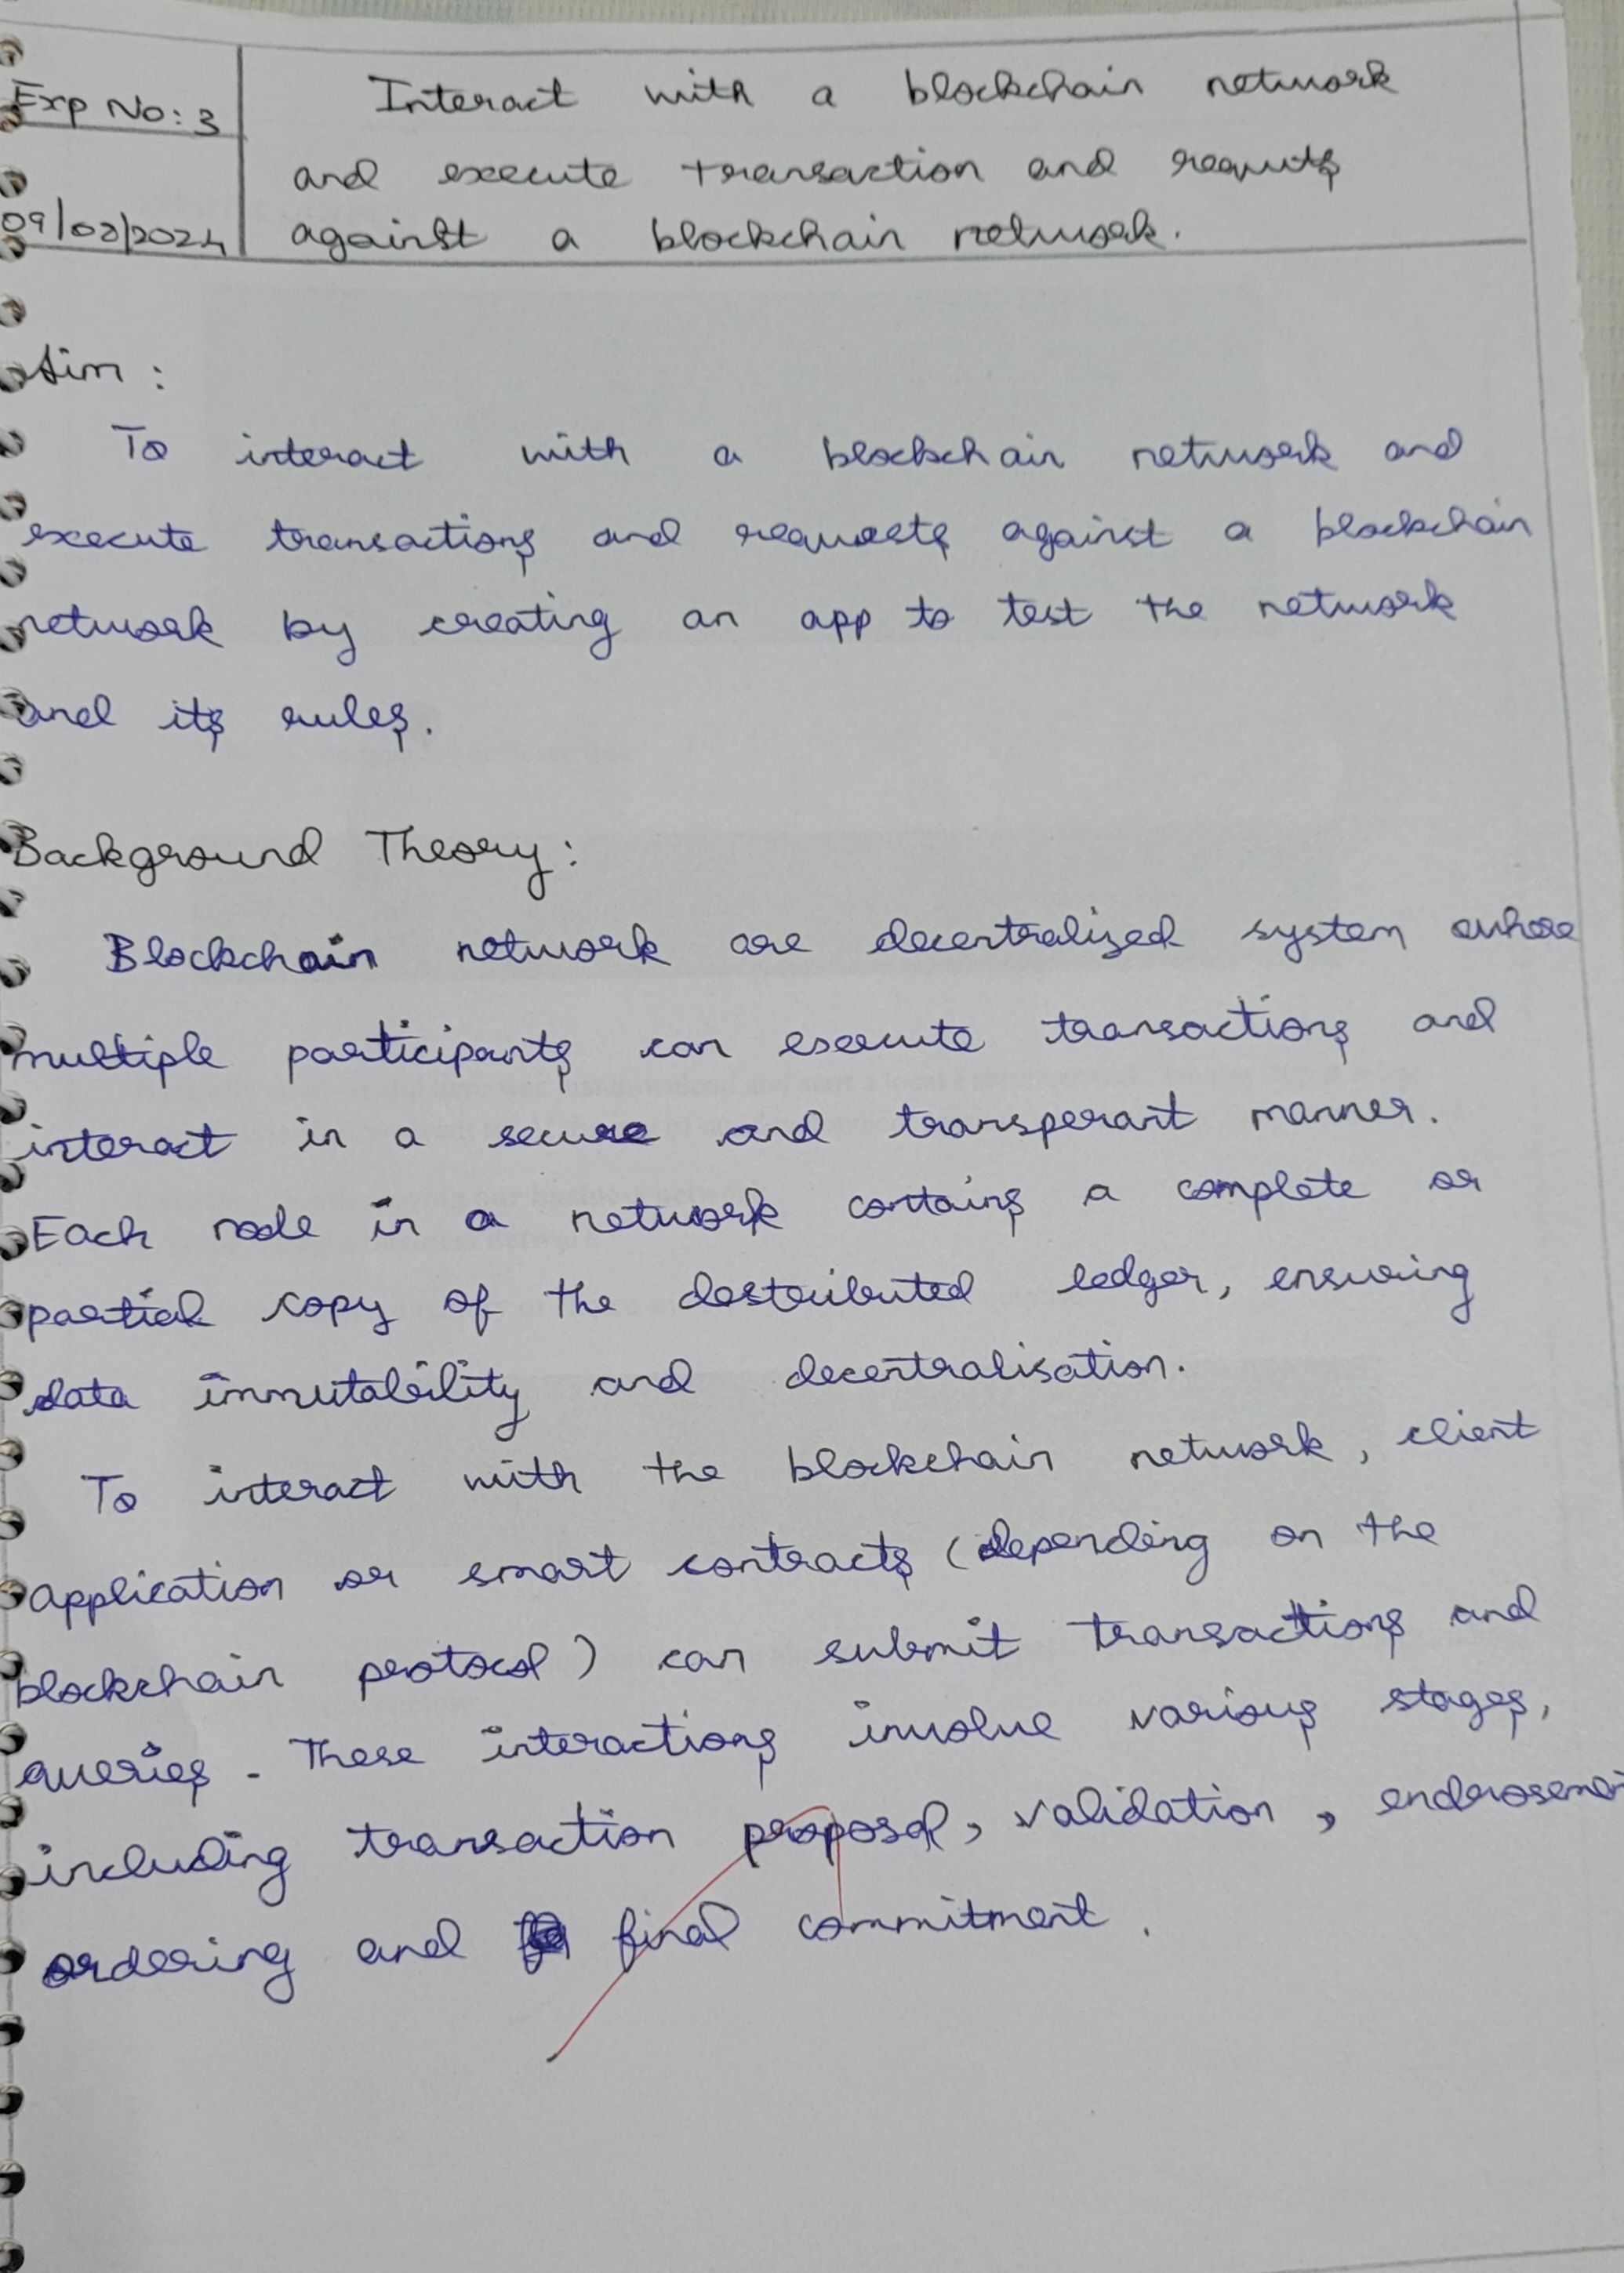 Exp No: 3
09/02/2024
Interact with a blockchain network
and execute transaction and requts
against a blockchain network.
Aim :
To interact with a blockchain network and
execute transactions and requests against a blockchain
network by creating an app to test the network
and its rules.
Background Theory:
Blockchain network are decentralized system whose
multiple participants can execute transactions and
interact in a secure and transperant manner.
Each node in a network contains a complete or
partial copy of the destributed ledger, ensuring
data immutability and decentralisation.
To interact with the blockchain network, client
application or smart contracts (depending on the
blockchain protocol) can submit transactions and
queries. These interactions involve various stages,
including transaction proposal, validation,
ordering and final commitment.